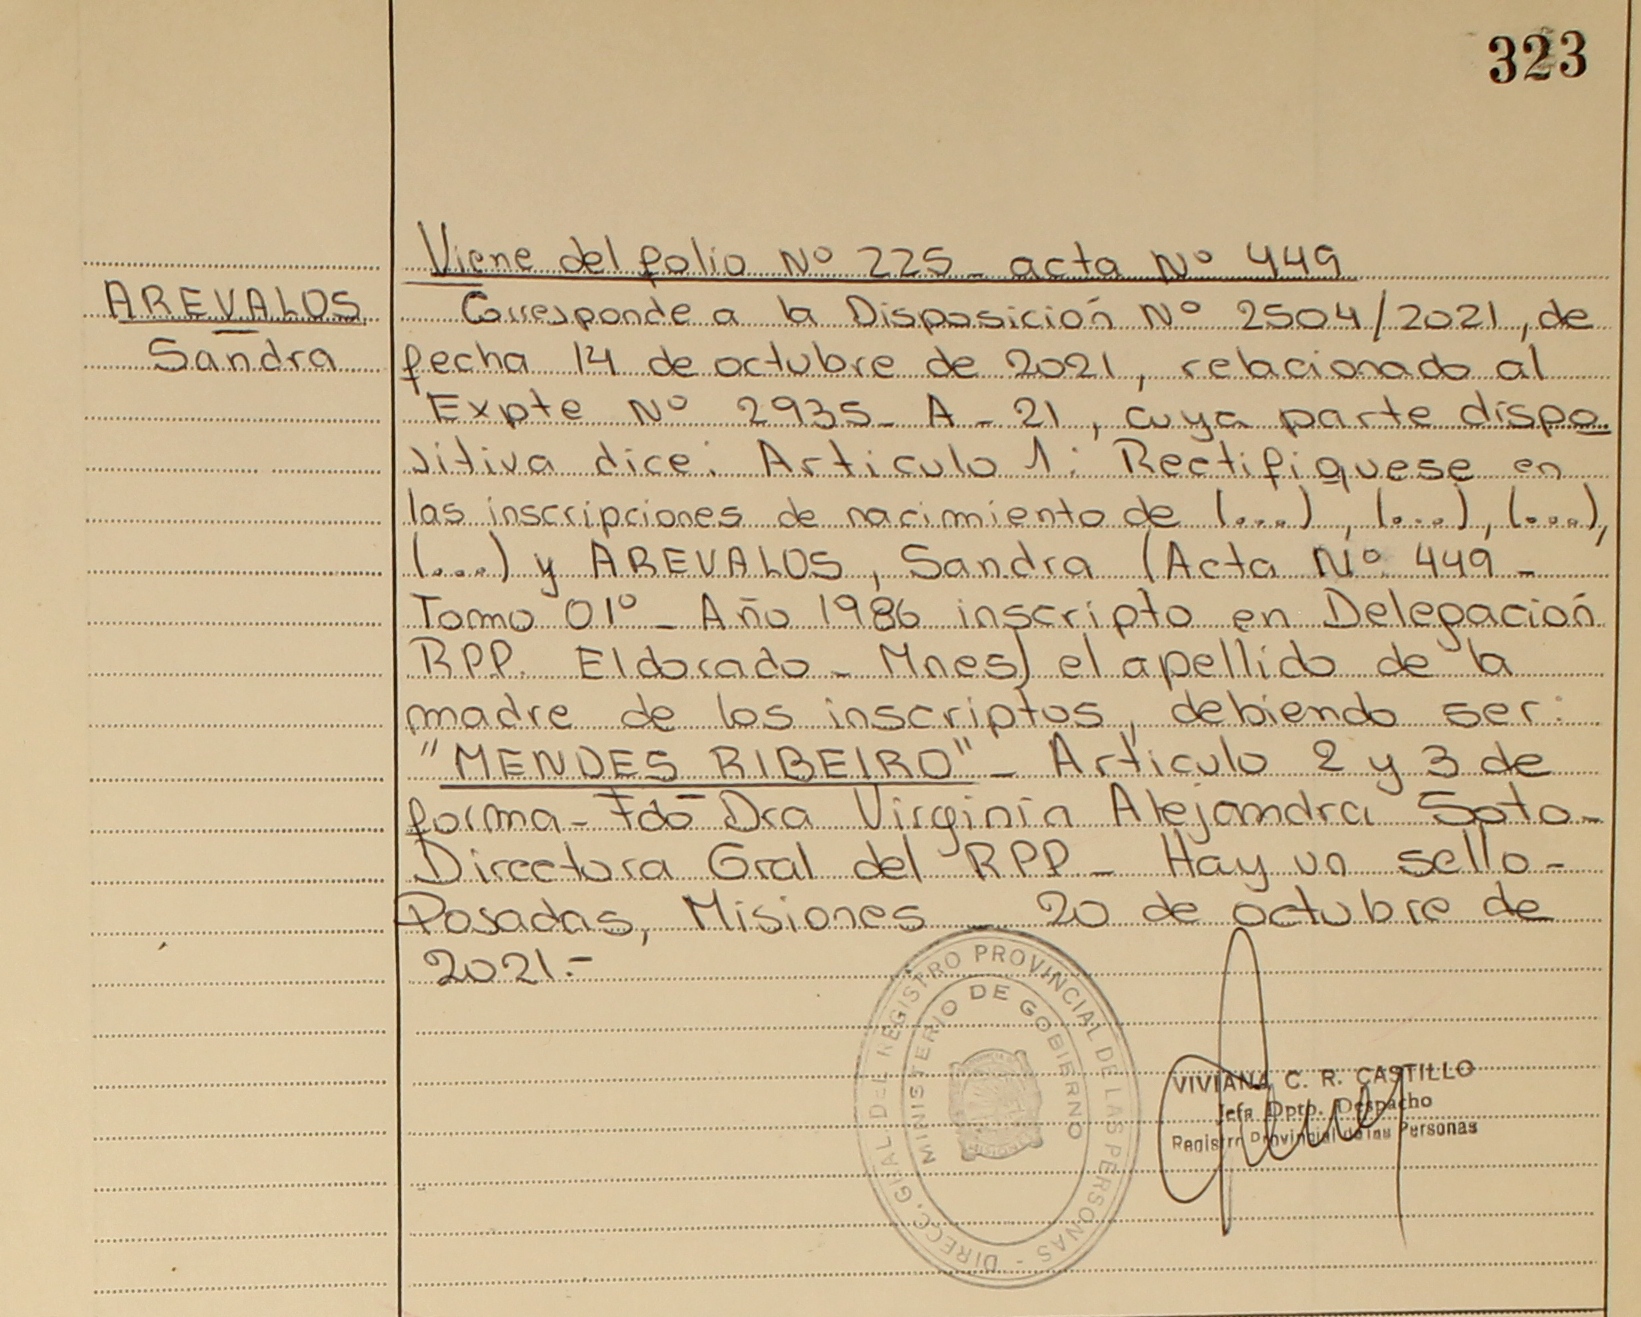 323
Viene del folio Nº 225 - acta Nº 449
AREVALOS
Sandra
Corresponde a la Disposición Nº 2504/2021, de
fecha 14 de octubre de 2021, relacionado al
Expte Nº 2935 - A - 21, cuya parte dispo
sitiva dice: Articulo 1: Rectifiquese en
las inscripciones de nacimiento de (...), (...), (...),
(...) y AREVALOS, Sandra (Acta Nº 449 -
Tomo 01º - Año 1986 inscripto en Delegación
RPP. Eldorado - Mnes) el apellido de la
madre de los inscriptos, debiendo ser:
"MENDES RIBEIRO" - Articulo 2 y 3 de
forma - Fdo Dra Virginia Alejandra Soto -
Directora Gral del RPP - Hay un sello -
Posadas, Misiones - 20 de octubre de
2021.-
DIRECC. GRAL DEL REGISTRO PROVINCIAL DE LAS PERSONAS -
MINISTERIO DE GOBIERNO
VIVIANA C. R. CASTILLO
Jefa Dpto. Despacho
Registro Provincial de las Personas